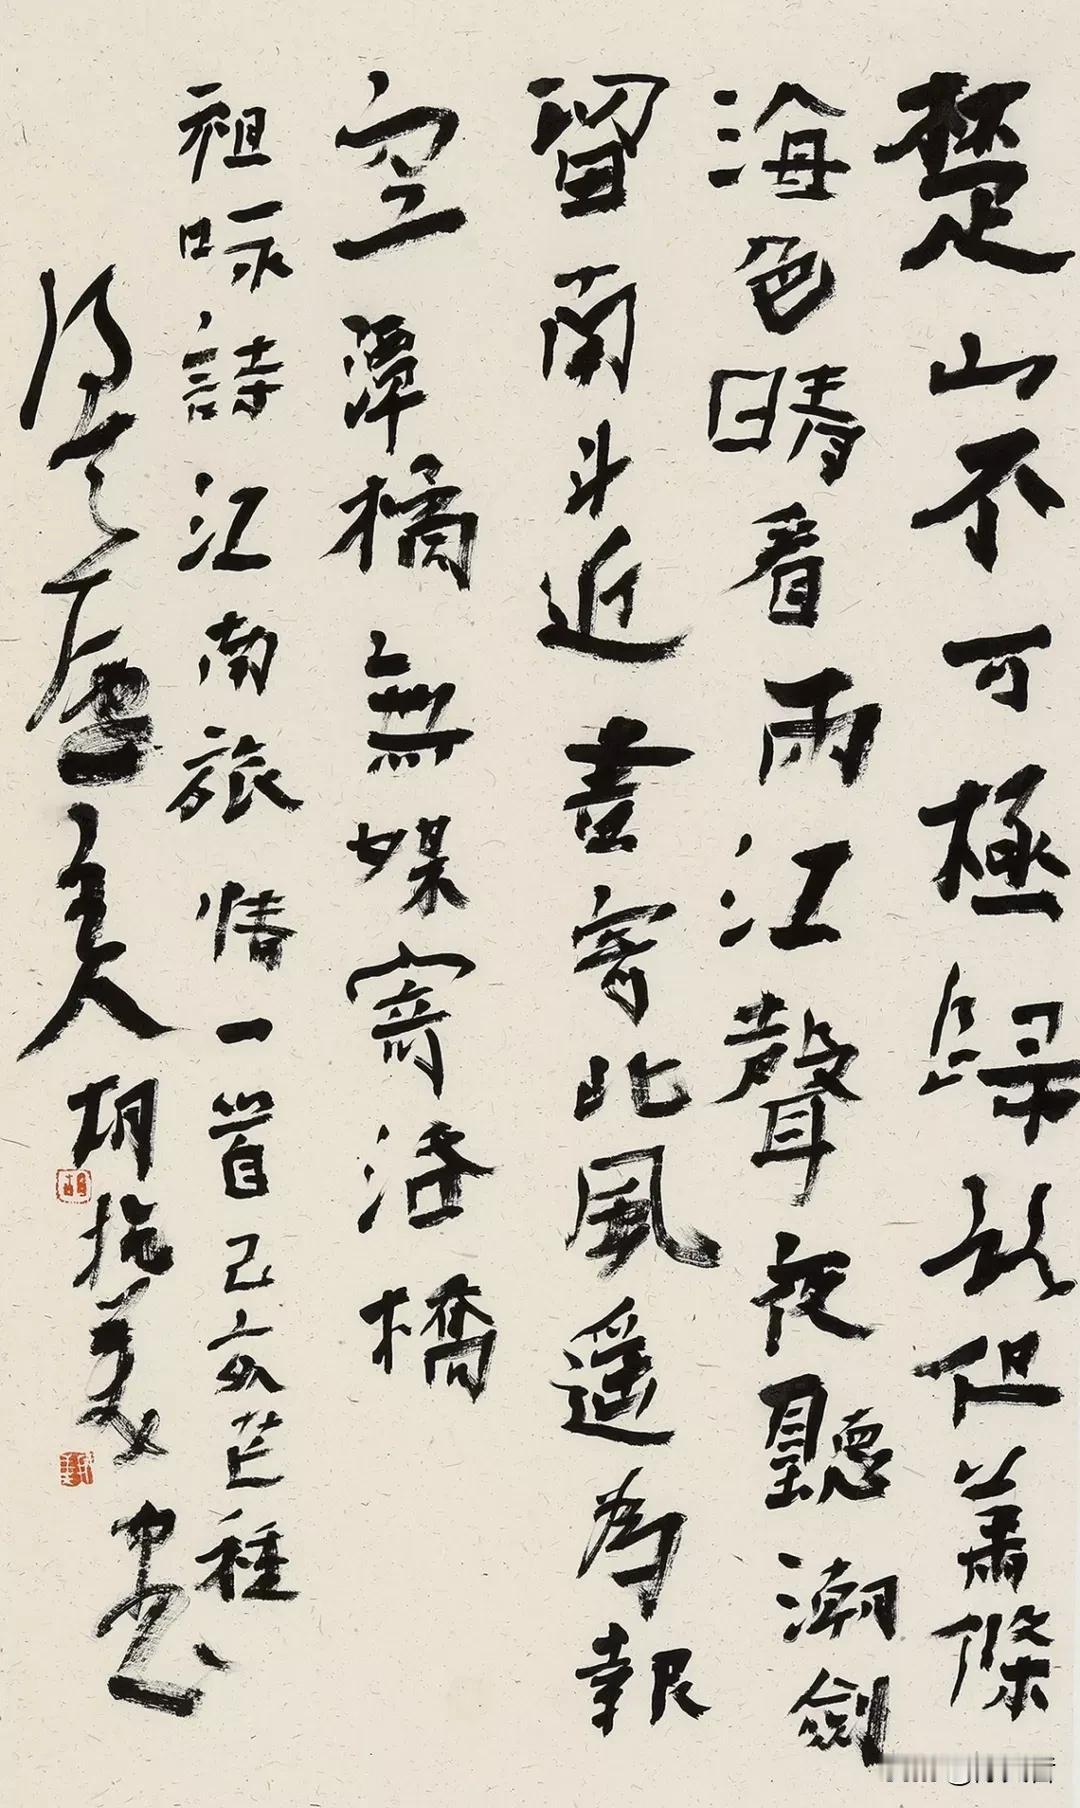 楚山不可極歸路但蕭條
海色晴看雨江聲夜聽潮劍
留南斗近書寄北風遙為報
空潭橘無媒寄洛橋
祖咏詩江南旅情一首己亥芒種
主人胡抗美書